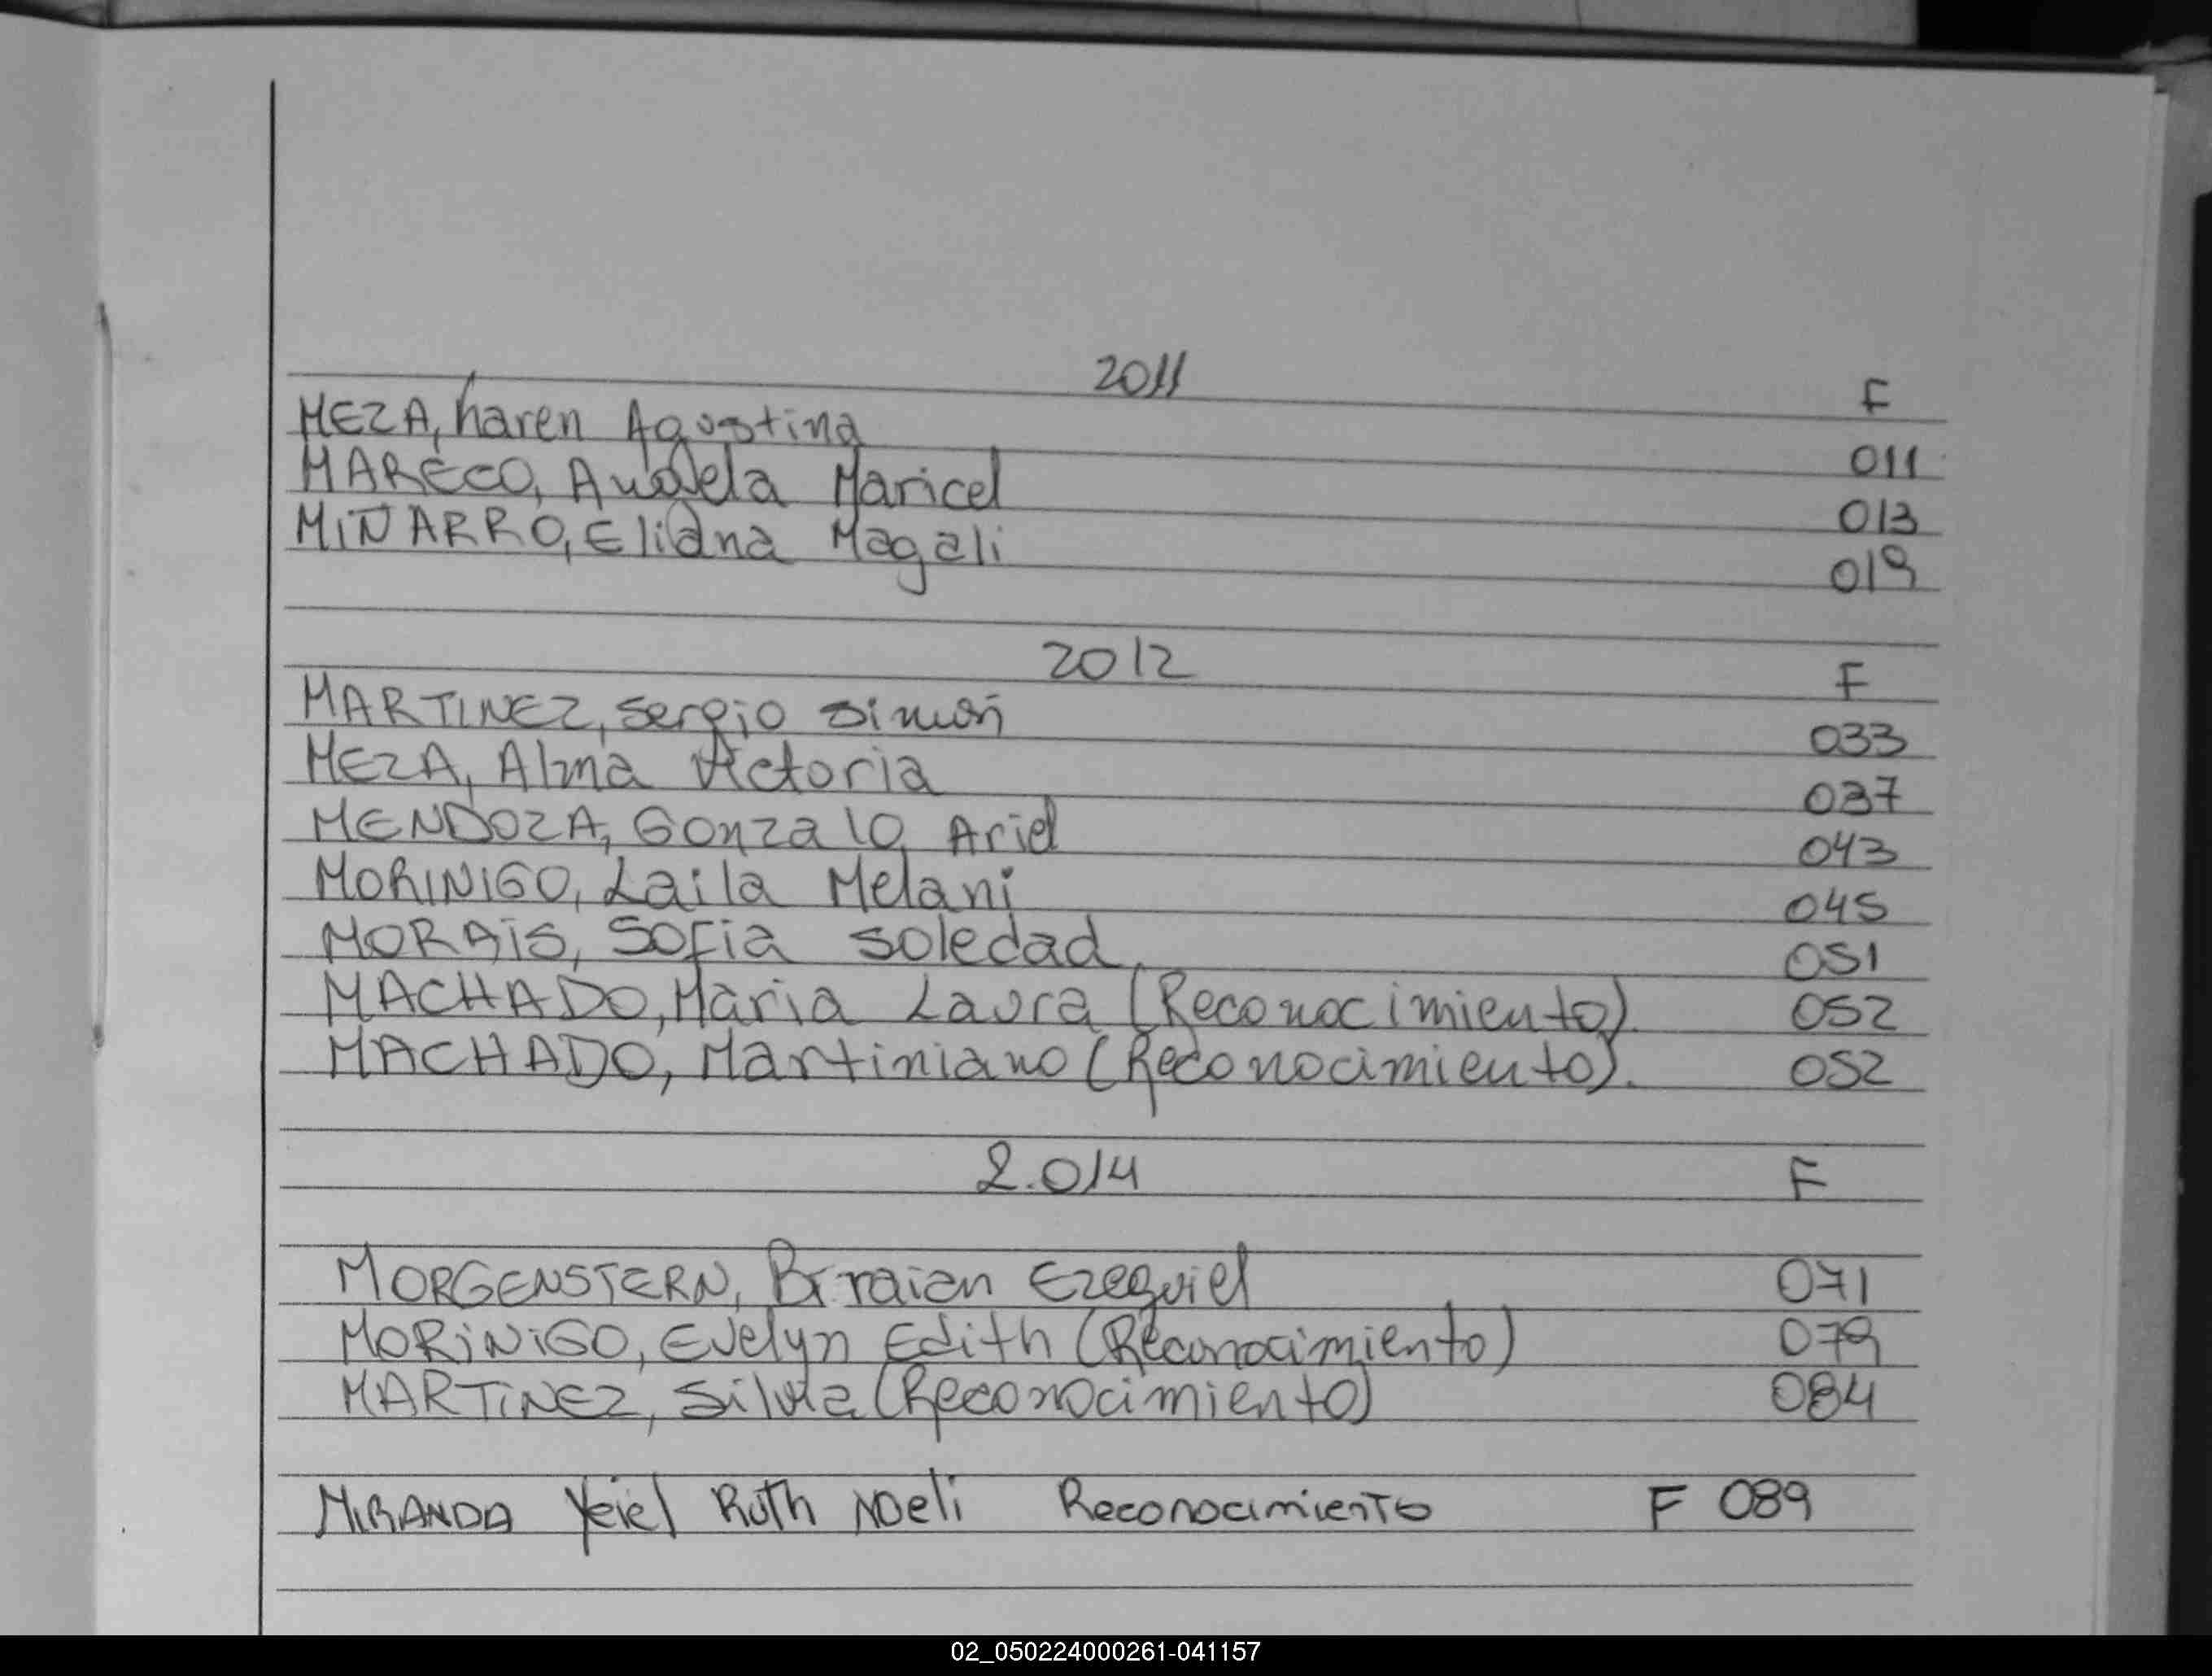 2011 F
MEZA, Karen Agostina 011
MARECO, Maricel 013
MIÑARRO, Eliana Magali 019
2012 F
MARTINEZ, Sergio Simón 033
MEZA, Alma Victoria 037
MENDOZA, Gonzalo Ariel 043
MORINIGO, Laila Melani 045
MORAIS, Sofia Soledad. 051
MACHADO, Maria Laura (Reconocimiento). 052
MACHADO, Martiniano (Reconocimiento). 052
2.014 F
MORGENSTERN, Braian Ezequiel 071
MORINIGO, Evelyn Edith (Reconocimiento) 079
MARTINEZ, Silvia (Reconocimiento) 084
MIRANDA Yeiel Ruth Noeli Reconocimiento F 089
02_050224000261-041157